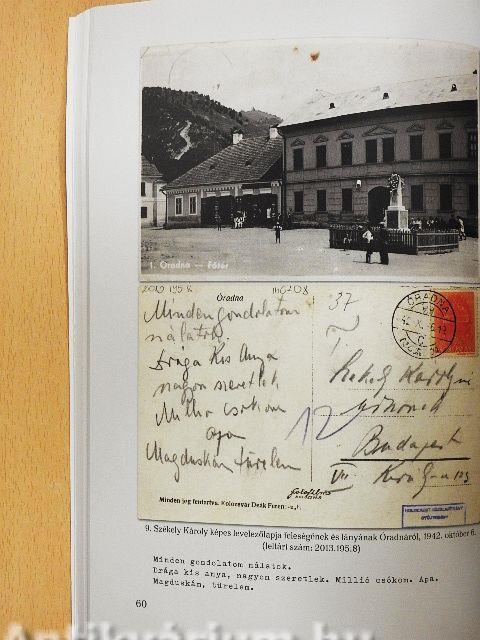 1. Óradna — Főtér
2013.195.8
Óradna
37
Minden gondolatom
nálatok.
Drága Kis Anya
nagyon szeretlek
Millió csókom
apa
Magduskám türelem
ÓRADNA
Székely Károlyné
úrnőnek
12
Budapest
VII
fotofilms
Minden jog fentartva. Kolozsvár Deák Ferenc-u.
HOLOCAUST KÖZALAPÍTVÁNY
GYŰJTEMÉNY
9. Székely Károly képes levelezőlapja feleségének és lányának Óradnáról, 1942. október 6.
(leltári szám: 2013.195.8)
Minden gondolatom nálatok.
Drága kis anya, nagyon szeretlek. Millió csókom. Apa.
Magduskám, türelem.
60
Antikvárium.hu